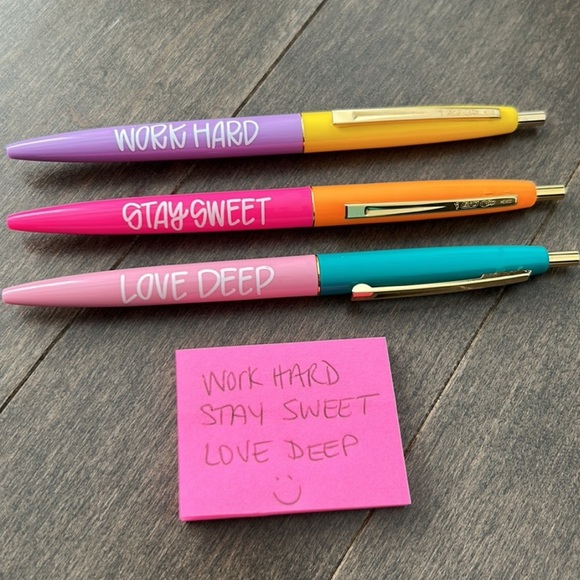 WORK HARD
STAY SWEET
LOVE DEEP
Work HARD
STAY SWEET
LOVE DEEP